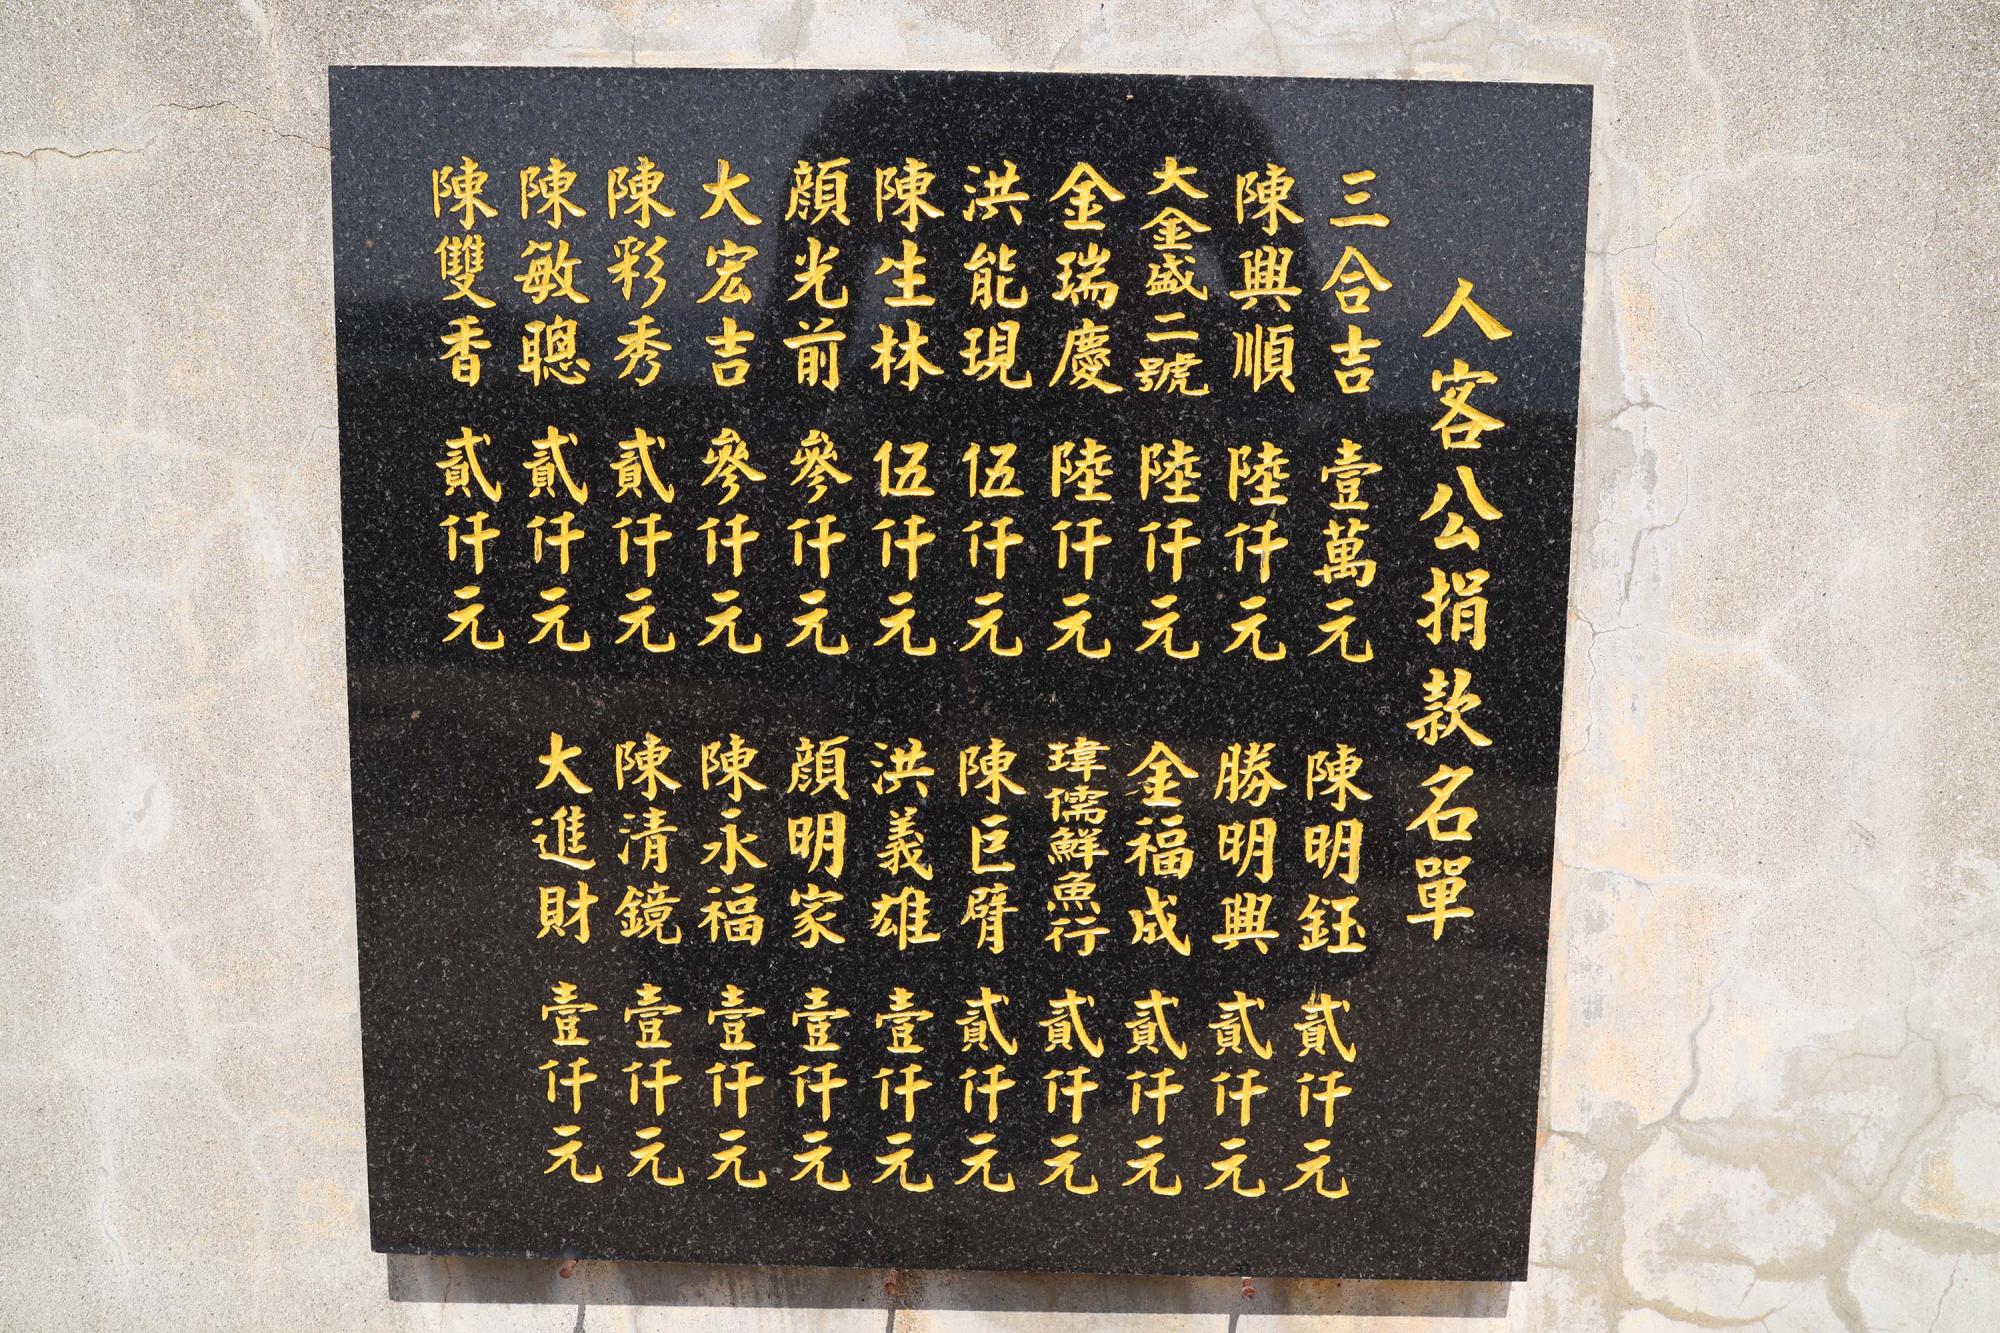 人客公捐款名單
三合吉 壹萬元
陳興順 陸仟元
大金盛二號 陸仟元
金瑞慶 陸仟元
洪能現 伍仟元
陳生林 伍仟元
顏光前 參仟元
大宏吉 參仟元
陳彩秀 貳仟元
陳敏聰 貳仟元
陳雙香 貳仟元
陳明鈺 貳仟元
勝明興 貳仟元
金福成 貳仟元
瑋儒鮮魚行 貳仟元
陳巨臂 貳仟元
洪義雄 壹仟元
顏明家 壹仟元
陳永福 壹仟元
陳清鏡 壹仟元
大進財 壹仟元